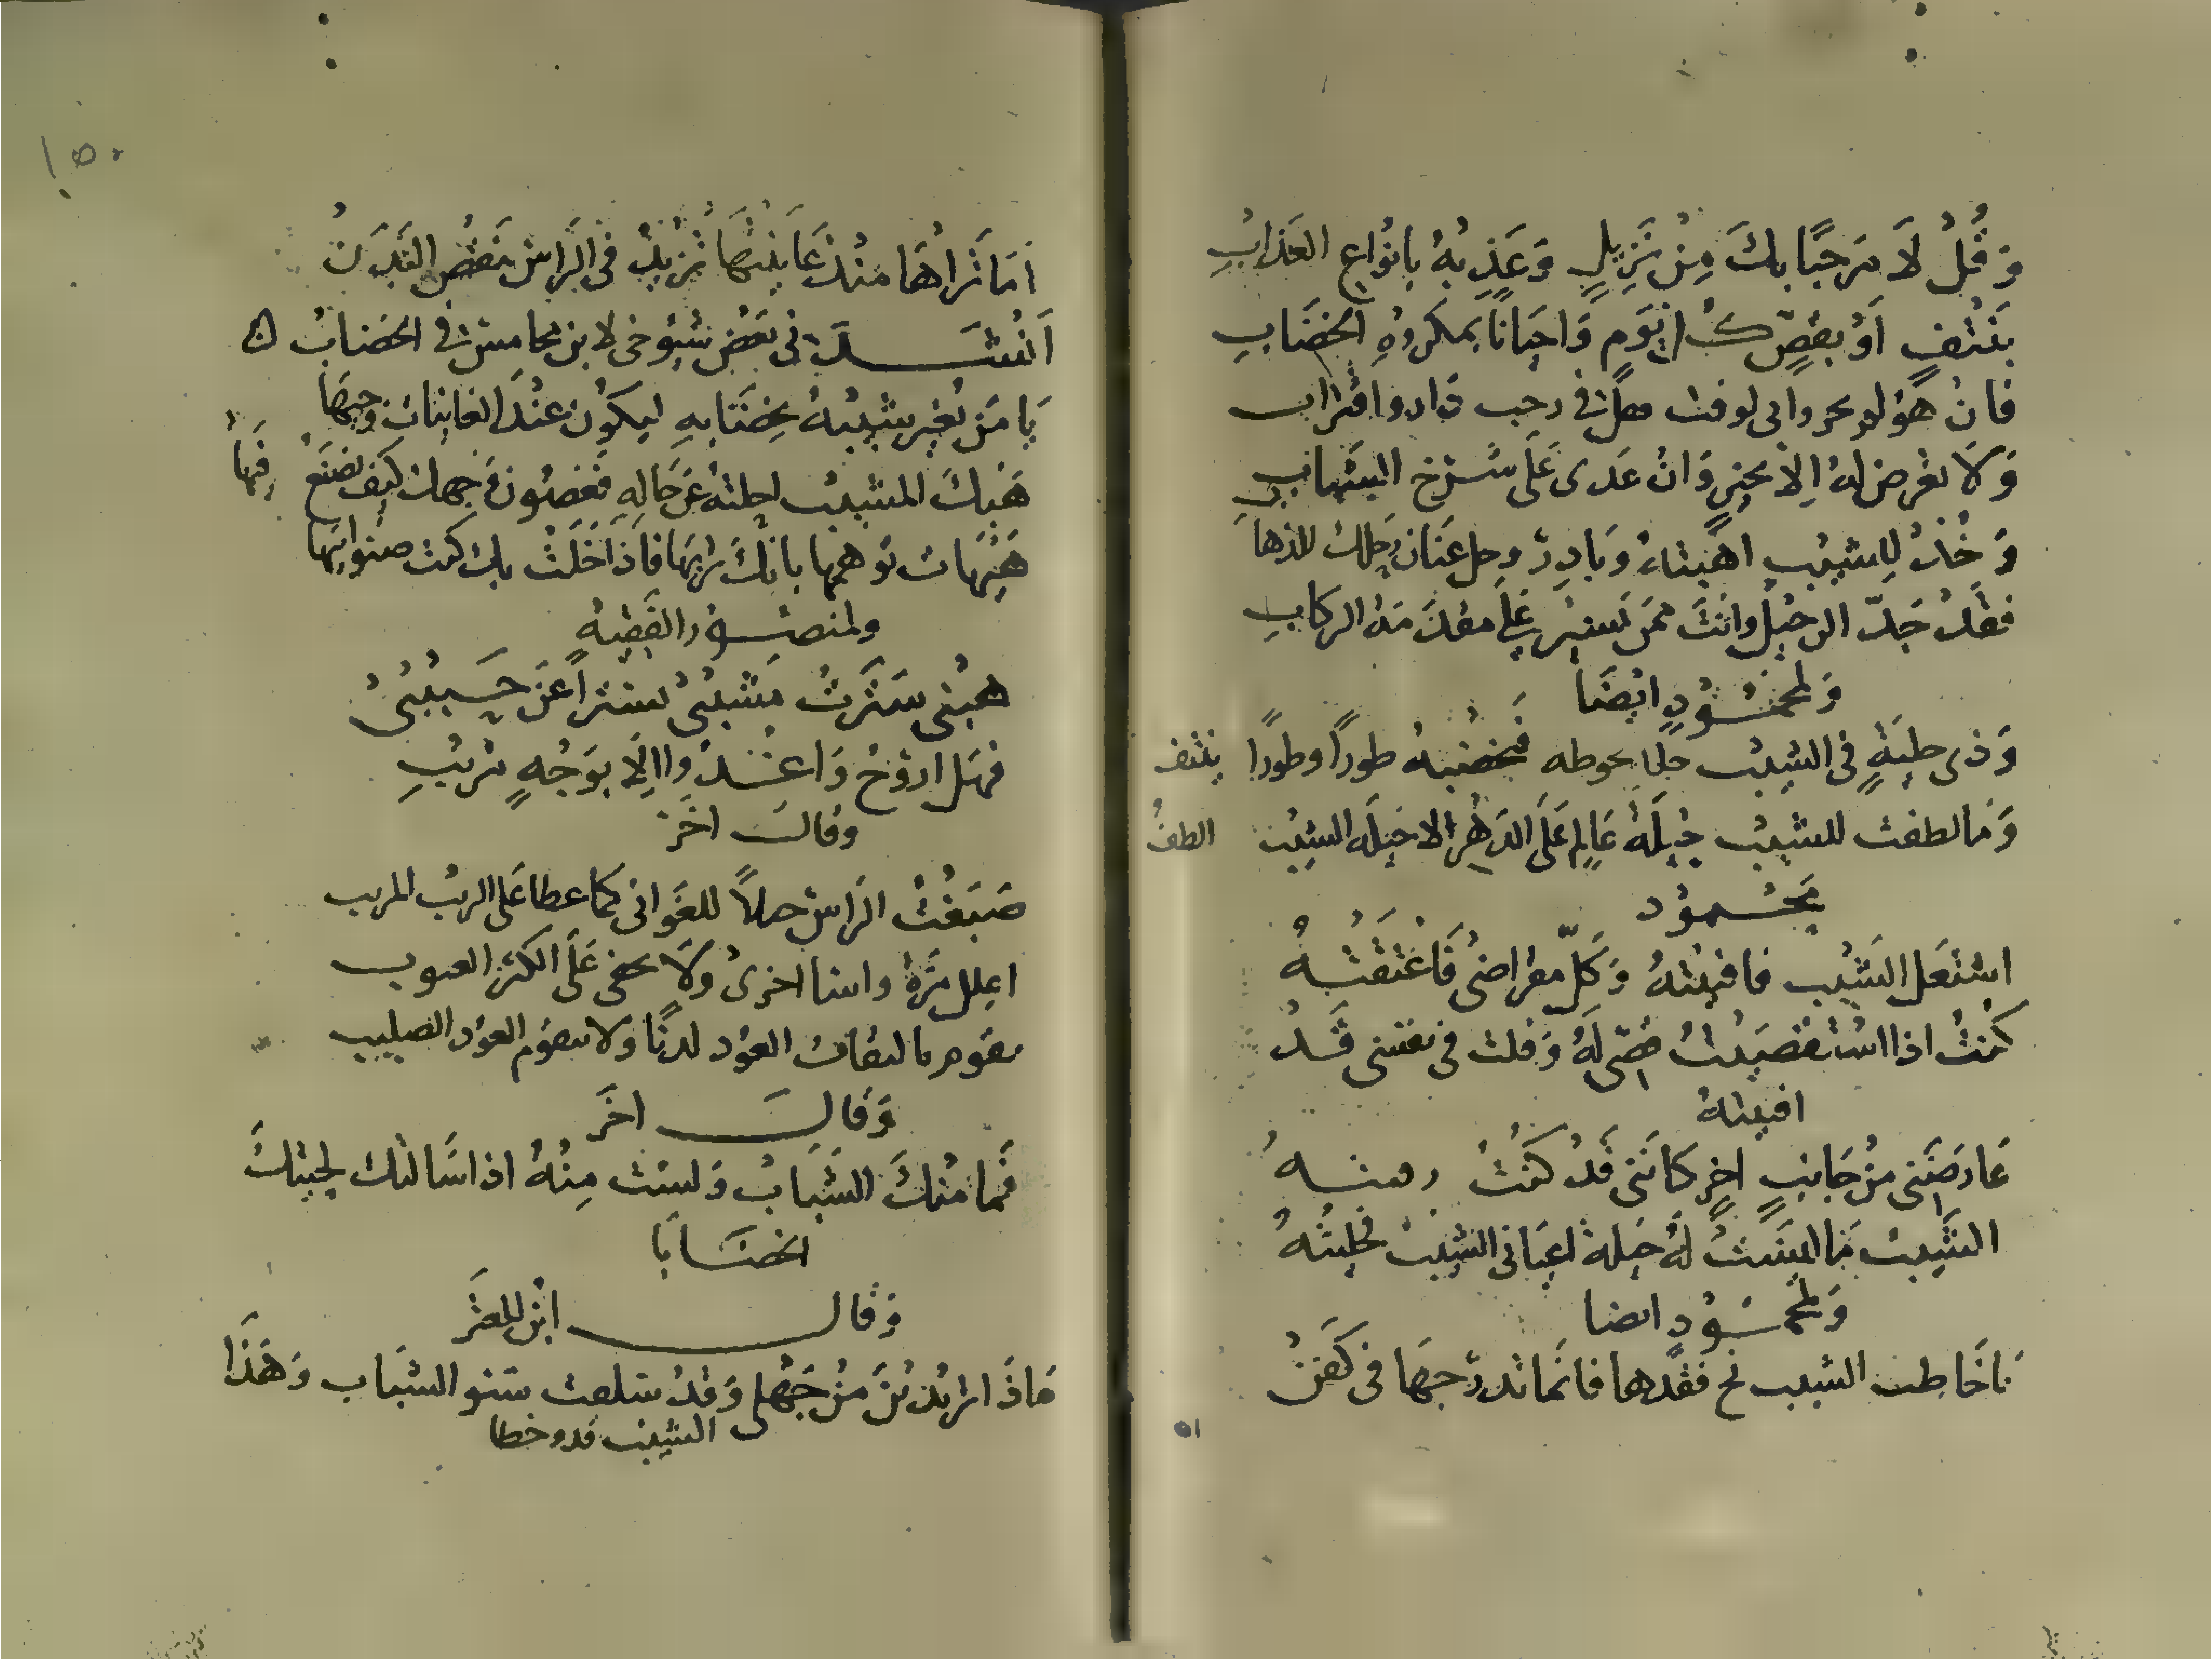 وَقُلْ لَا مَرحَبًا بكَ مِنْ نَزِيلٍ وَعَذِبهُ بانوَاعِ العَذابِ
بنَتْفٍ اَوْ بقصٍّ كُل يَومٍ وَاحيَانًا بمكروُهِ الخضَابِ
فان هوَ لم
وَلَا تعرض لهُ اِلا بخيرٍ وَان عَدى عَلَى شَرْخ الشَبابِ
وَخُذ لِلشيبِ اهبَتهُ وَبادِرْ وحل عنَان رَحلك للذهاب
فقَد جَدّ الرحيْلُ وَانتَ ممَن يَسيْر عَلَى مقدمَة الركابِ
وَلمحمُودٍ ايضَا
وَذى حليَةٍ فى الشيْب يحوطه فيخضبهُ طورًا وطورًا بنتف
وَمَا لطفت للشيْب حيْلَة عَالِم عَلَى الدَهْر الا حيلَة الشيْب الطفُ
محْمُود
اشتعَل الشيْب فافنيتهُ وَكَلّ مقراضى فَاعْتقتهُ
كُنتُ اذا استقصَيْتُ قصّى لهُ وَقلت فى نفسى قَدْ
افنيتهُ
عَارَضَنى مِنْ جَانبٍ اخرٍ كانَنى قَدْ كنتُ
الشيْب مَا ليسَتْ لهُ حيلة اعيَانى الشيب فخليتُهُ
وَلمحمُودٍ ايضا
يَا خَاضِب الشيب نح فقدها فانمَا تدرجهَا فى كَفَنْ
٥١
١٥٠
اَمَا تَرَاهَا مُنذ عَاينتهَا تزيْدُ فى الرَاس بنَقْص البَدَن
اَنْشَدَنى بَعْض شيُوخى لابن فى الخضابْ
يَا مَن يُغير شيبهُ بخضَابهِ ليكُون عنْد الغانيات وَجيهَا
هَبكَ المشيب احلتهُ عَن حَالهِ فغصُون وَجهك كيف تصنَع فيهَا
هيْهَات توهمها بانكَ تربهَا فاذا خَلَتْ بك كنت صنو ابيهَا
ولمنصُور الفَقِيْه
هبْنى ستَرتُ مَشيبىْ ستراً عَن حَبيبىْ
فهَل اروُح وَاغْدُوا اِلَا بوَجْهٍ مُريْبِ
وقالَ اخَر
صَبَغْتُ الرَاس للغَوانى كما غطا عَلى الريب المريب
اعِلل مَرَةً اخرىْ وَلَا عَلَى الكبَر العيوب
العوُد لدنًا وَلا يتقوم العوُد الصليب
وَقالَ اخَر
فمَا منْكَ الشَبَابْ وَلسْت مِنْهُ اذا سَالتك لحيتكَ
الخضَابَا
وَقال ابْن المعتَز
مَاذَا تريْديْنَ مِنْ جَهْلى وَقدْ سَلفت سنو الشبَاب وَهَذَا
الشيْب قد وخطا